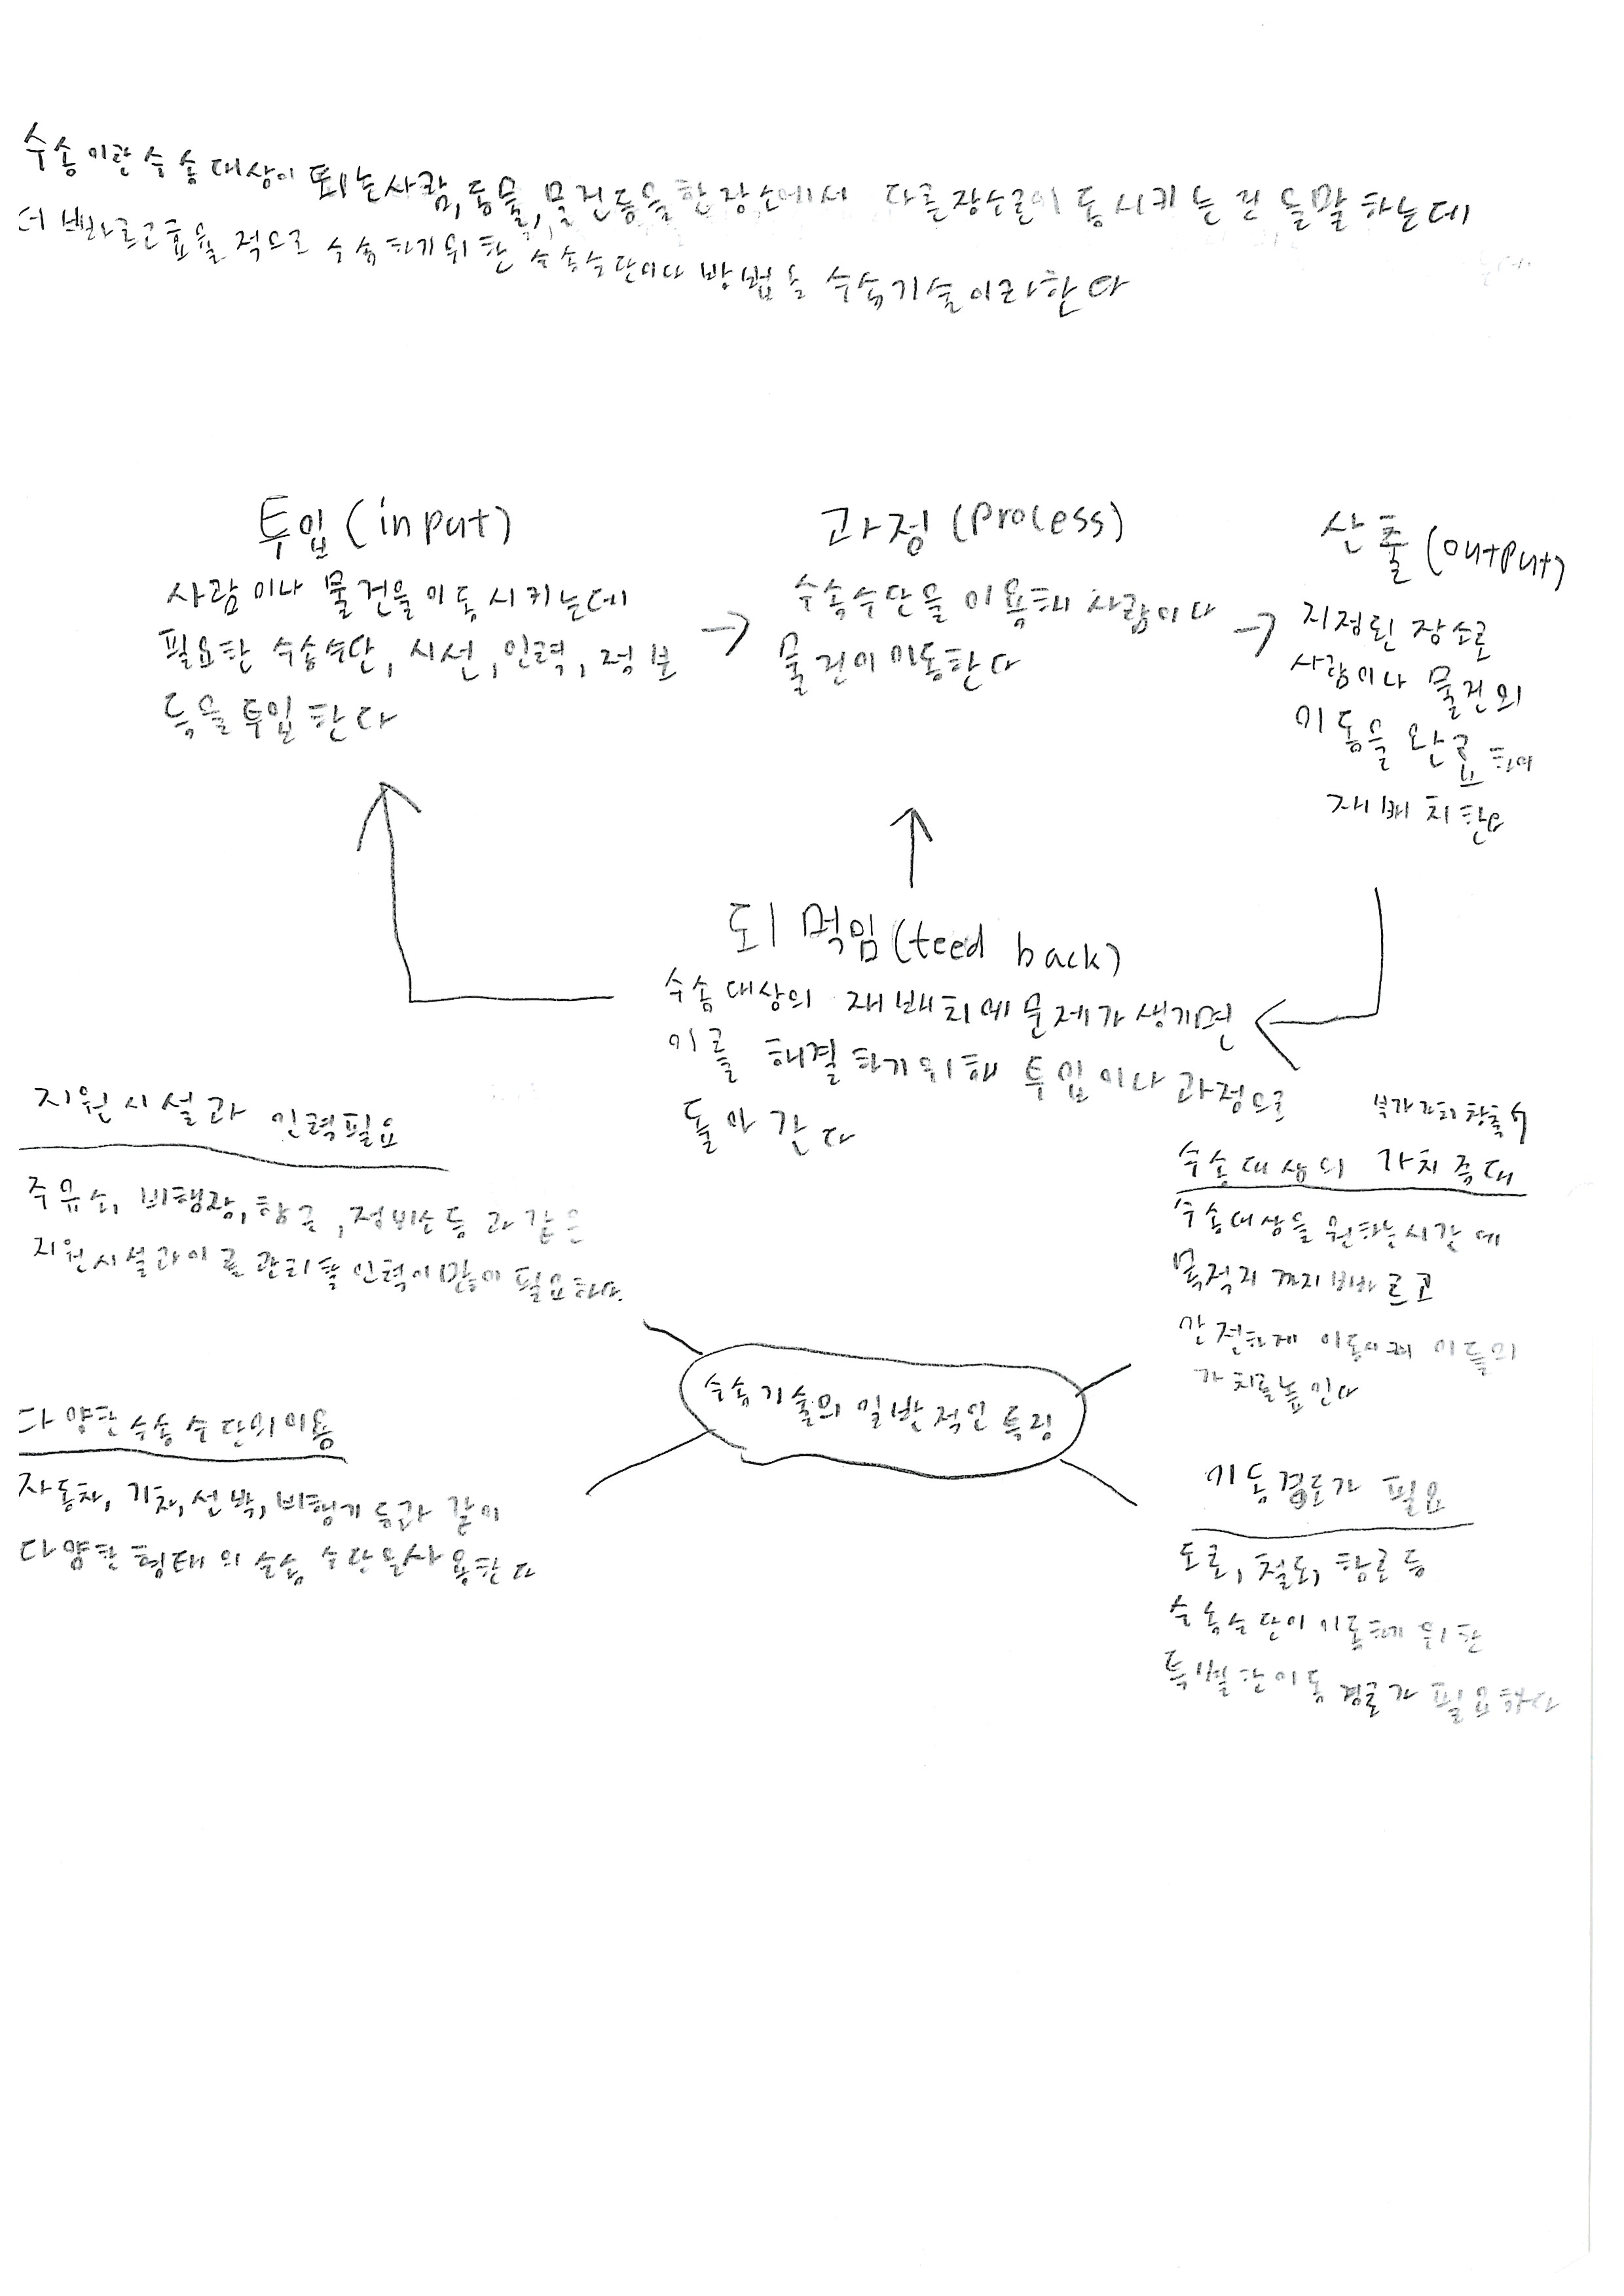 수송이란 수송대상이 되는사람, 동물, 물건등을 한장소에서 다른장소로이동시키는 것을말하는데
더 빠르고효율적으로 수송하기위한 수송수단이나 방법을 수송기술이라한다
투입(input)
사람이나 물건을이동시키는데
필요한 수송수단, 시설, 인력, 정보
등을투입한다
→
과정(process)
수송수단을 이용해 사람이나
물건이이동한다
→
산출(output)
지정된 장소로
사람이나 물건의
이동을 완료하여
재배치한다
되먹임(feed back)
수송대상의 재배치에문제가생기면
이를 해결하기위해 투입이나 과정으로
돌아간다
지원시설과 인력필요
주유소, 비행장, 항구, 정비소등과 같은
지원시설과이를 관리할 인력이많이 필요하다.
부가가치창출↑
수송대상의 가치증대
수송대상을 원하는시간에
목적지까지빠르고
안전하게 이동시켜 이들의
가치를높인다
수송기술의 일반적인 특징
다양한수송수단의이용
자동차, 기차, 선박, 비행기등과 같이
다양한 형태의 수송수단을사용한다
이동경로가 필요
도로, 철도, 항로등
수송수단이 이동하기 위한
특별한이동경로가 필요하다